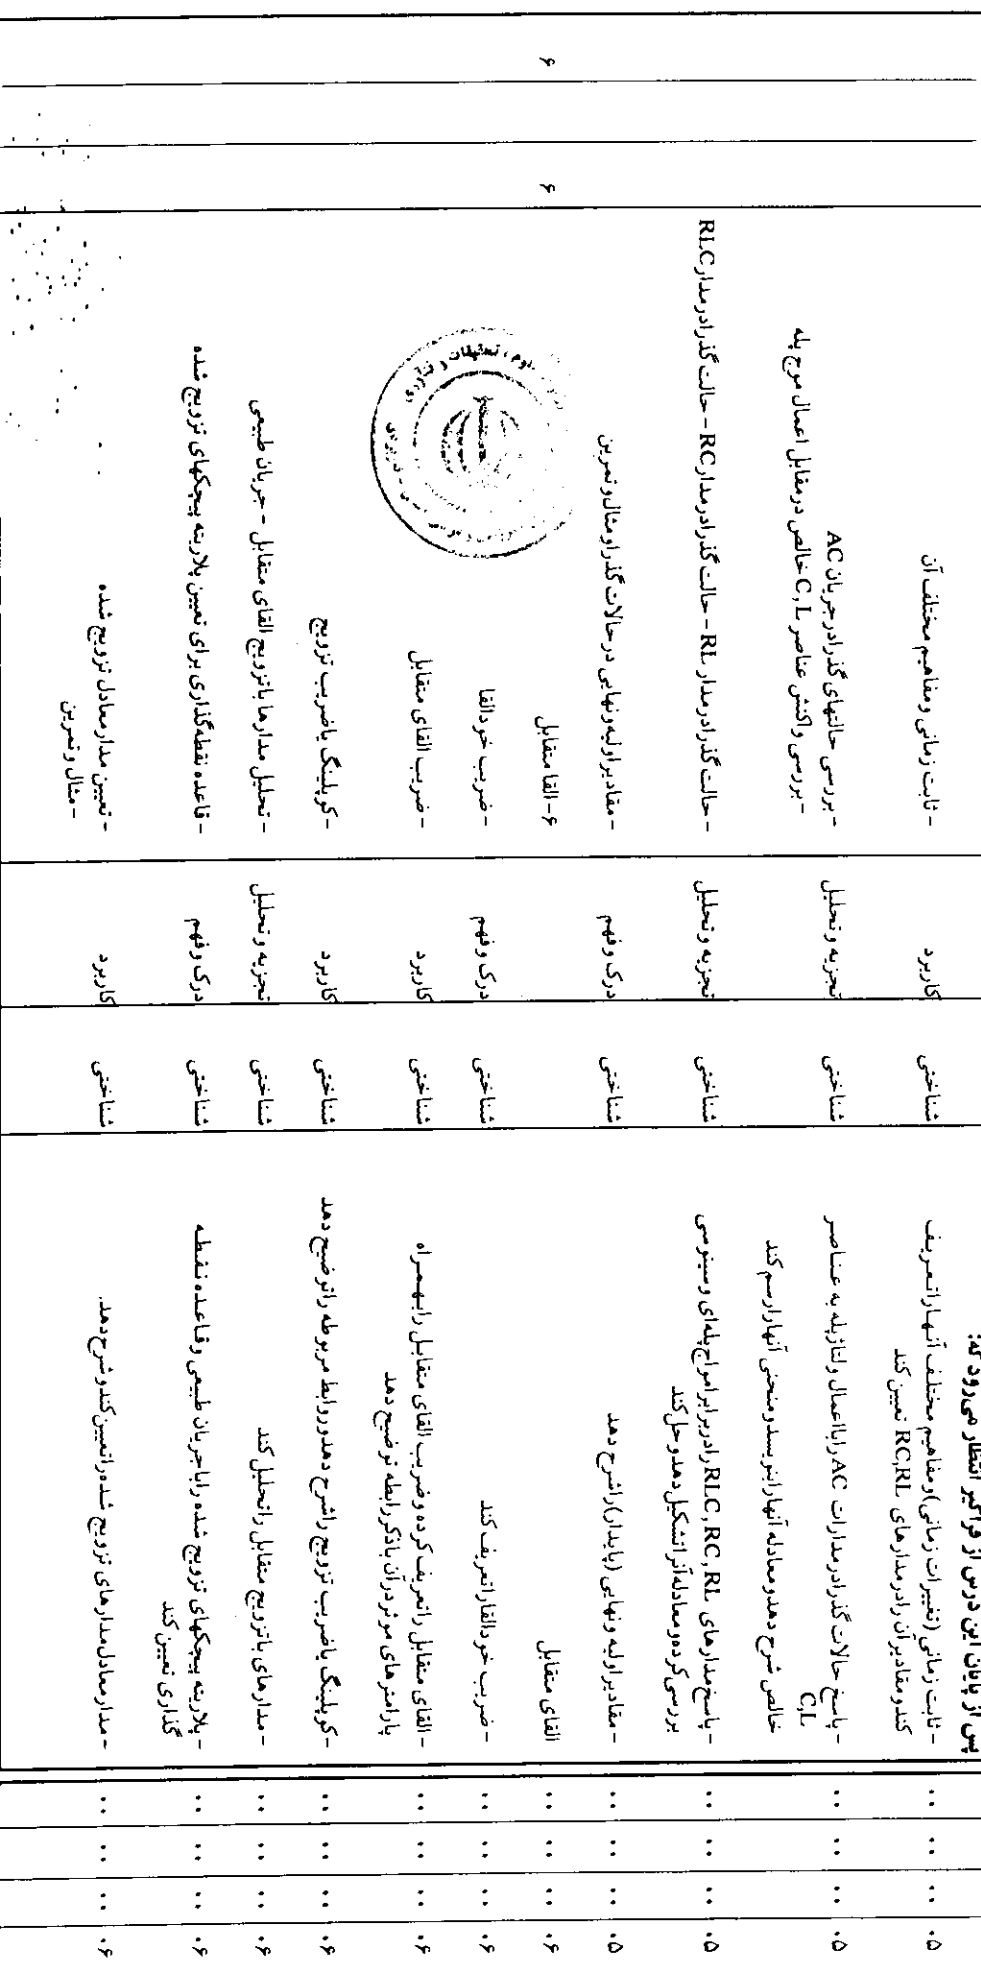 پس از پایان این درس از فراگیر انتظار می‌رود که:
۰۵ ۰۰ ۰۰ ۰۰
- ثابت زمانی (تغییرات زمانی) و مفاهیم مختلف آنها را تعریف
کند و مقادیر آن را در مدارهای RC,RL تعیین کند
شناختی
کاربرد
- ثابت زمانی و مفاهیم مختلف آن
۰۵ ۰۰ ۰۰ ۰۰
- پاسخ حالات گذرا در مدارات AC را با اعمال ولتاژ پله به عناصر
C,L
خالص شرح دهد و معادله آنها را بنویسد و منحنی آنها را رسم کند
شناختی
تجزیه و تحلیل
- بررسی حالتهای گذرا در جریان AC
- بررسی واکنش عناصر C,L خالص در مقابل اعمال موج پله
۰۵ ۰۰ ۰۰ ۰۰
- پاسخ مدارهای RLC, RC, RL را در برابر امواج پله‌ای و سینوسی
بررسی کرده و معادله آنرا تشکیل دهد و حل کند
شناختی
تجزیه و تحلیل
- حالت گذرا در مدار RL - حالت گذرا در مدار RC - حالت گذرا در مدار RLC
۰۵ ۰۰ ۰۰ ۰۰
- مقادیر اولیه و نهایی (پایدار) را شرح دهد
شناختی
درک و فهم
- مقادیر اولیه و نهایی در حالات گذرا و مثال و تمرین
۰۶ ۰۰ ۰۰ ۰۰
القای متقابل
۶- القا متقابل
۶
۶
۰۶ ۰۰ ۰۰ ۰۰
- ضریب خودالقا را تعریف کند
شناختی
درک و فهم
- ضریب خودالقا
۰۶ ۰۰ ۰۰ ۰۰
- القای متقابل را تعریف کرده و ضریب القای متقابل را بهمراه
پارامترهای موثر در آن با ذکر رابطه توضیح دهد
شناختی
کاربرد
- ضریب القای متقابل
۰۶ ۰۰ ۰۰ ۰۰
- کوپلینگ یا ضریب تزویج را شرح دهد و روابط مربوطه را توضیح دهد
شناختی
کاربرد
- کوپلینگ یا ضریب تزویج
۰۶ ۰۰ ۰۰ ۰۰
- مدارهای با تزویج متقابل را تحلیل کند
شناختی
تجزیه و تحلیل
- تحلیل مدارها با تزویج القای متقابل - جریان طبیعی
۰۶ ۰۰ ۰۰ ۰۰
- پلاریته پیچکهای تزویج شده را با جریان طبیعی و قاعده نقطه
گذاری تعیین کند
شناختی
درک و فهم
- قاعده نقطه‌گذاری برای تعیین پلاریته پیچکهای تزویج شده
۰۶ ۰۰ ۰۰ ۰۰
- مدار معادل مدارهای تزویج شده را تعیین کند و شرح دهد.
شناختی
کاربرد
- تعیین مدار معادل تزویج شده
- مثال و تمرین
علوم، تحقیقات و فنآوری